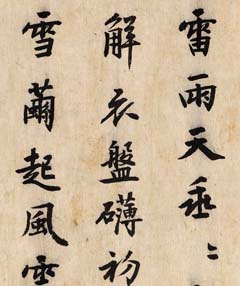 雷雨天垂〻
解衣盤礴初
雪繭起風雲